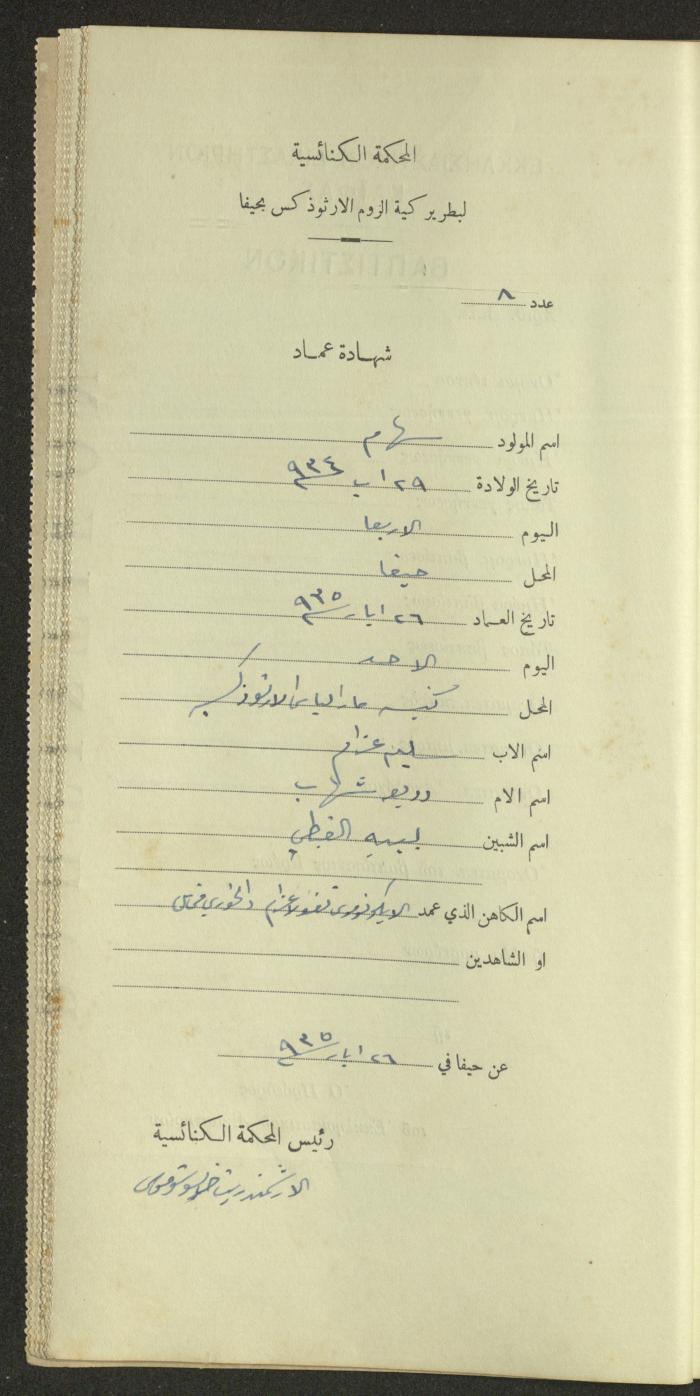 المحكمة الكنائسية
لبطريركية الروم الارثوذكس بحيفا
عدد ٨
شهادة عماد
اسم المولود سهام
تاريخ الولادة ٢٩ اب ٩٣٤
اليوم الاربعا
المحل حيفا
تاريخ العماد ٢٦ ايار ٩٣٥
اليوم الاحد
المحل كنيسة مار الياس الارثوذكسيه
اسم الاب سليم عزام
اسم الام وديعه شهاب
اسم الشبين لبيبه القبطي
اسم الكاهن الذي عمد نقولا عزام والخوري
او الشاهدين
عن حيفا في ٢٦ ايار ٩٣٥
رئيس المحكمة الكنائسية
الارشمندريت